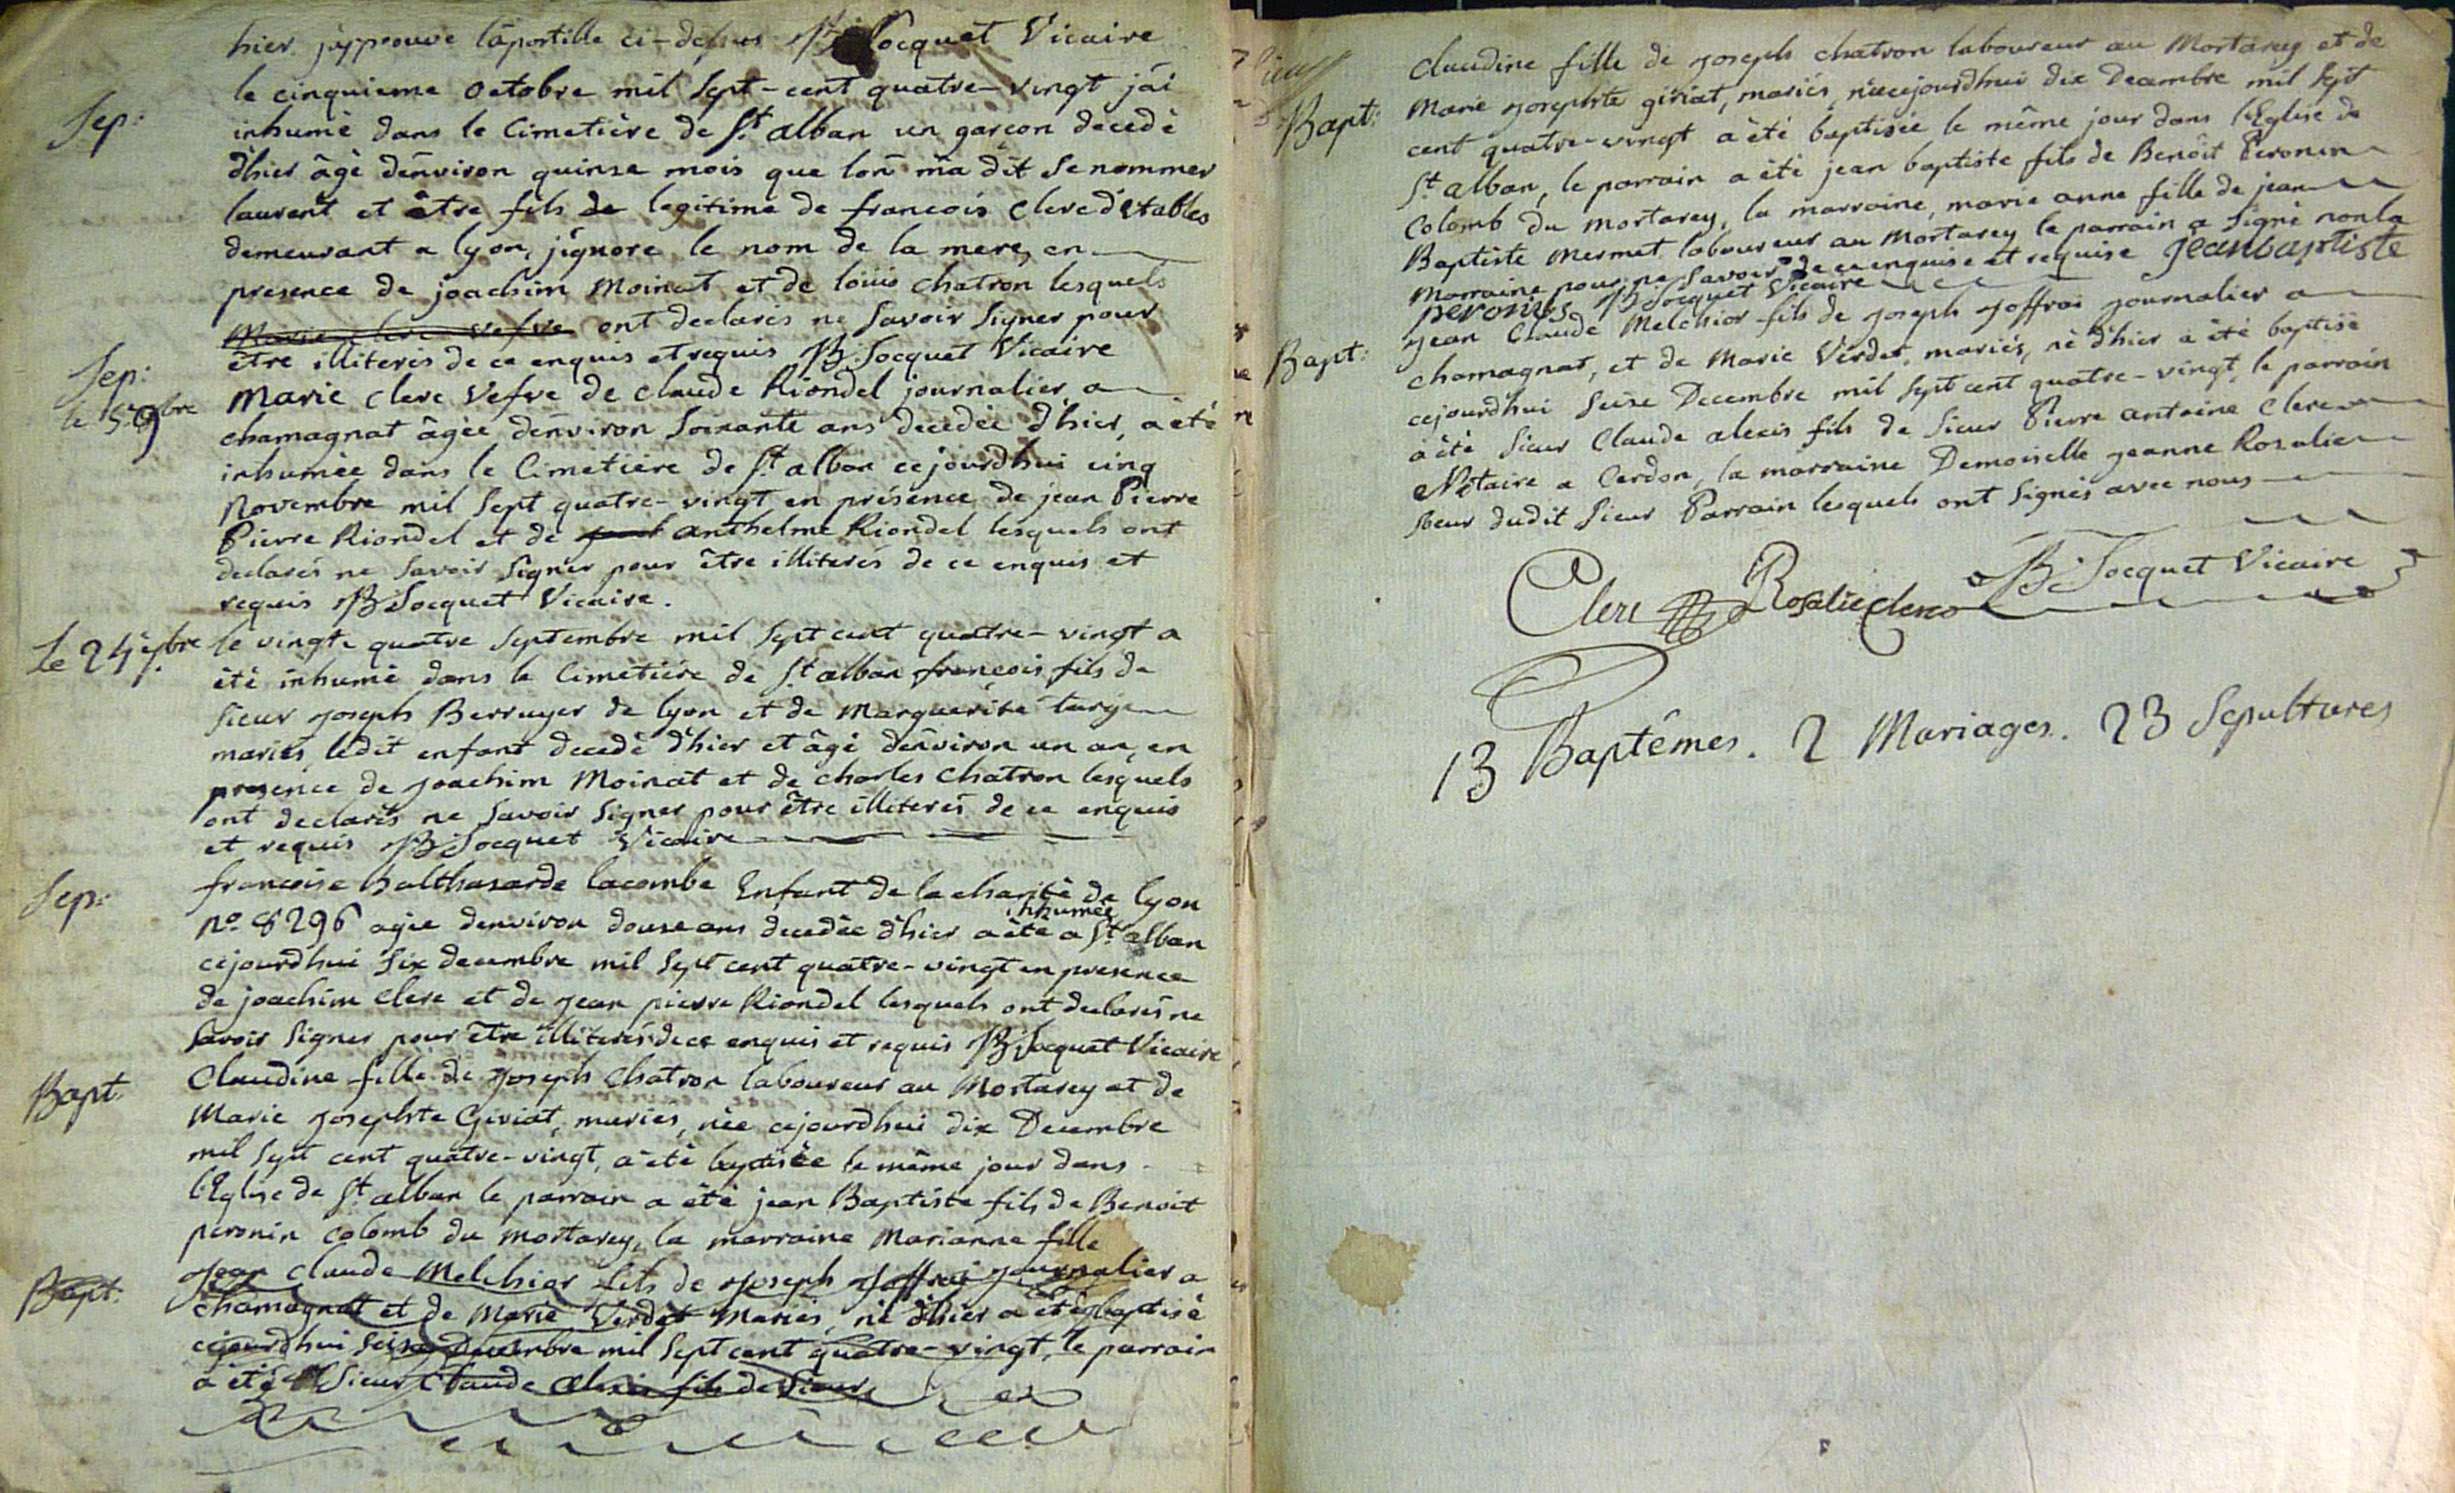 hier. j'approuve l'apostille ci-dessus B: Jocquet Vicaire
Sep:
le cinquieme octobre mil sept-cent quatre-vingt j'ai
inhumé dans le Cimetière de St alban un garçon decedé
d'hier âgé d'environ quinze mois que l'on m'a dit se nommer
laurent et être fils de legitime de francois Clerc d'étables
demeurant a lyon, j'ignore le nom de la mere, en
presence de joachim Moinat et de louis chatron lesquels
Marie clerc vefve ont declarés ne savoir signer pour
être illiterés de ce enquis et requis B: Jocquet Vicaire
Sep:
le 5e 9bre
Marie Clerc Vefve de Claude Riondel journalier a
chamagnat âgée d'environ soixante ans decedée d'hier, a été
inhumée dans le Cimetière de St alban cejourdhui cinq
Novembre mil sept quatre-vingt en présence de jean Pierre
Pierre Riondel et de anthelme Riondel lesquels ont
declarés ne savoir signer pour être illiterés de ce enquis et
requis B: Jocquet Vicaire.
Le 24e 7bre
le vingt quatre septembre mil sept cent quatre-vingt a
été inhumé dans le Cimetière de St alban françois fils de
sieur joseph Berruyer de lyon et de Marguerite
mariés, ledit enfant decedé d'hier et âgé d'environ un an, en
presence de joachim Moinat et de charles Chatron lesquels
ont declarés ne savoir signer pour être illiterés de ce enquis
et requis B: Jocquet Vicaire
Sep:
francoise balthasarde lacombe Enfant de la charité de lyon
No 8296 agée denviron douze ans decedée d'hier a été inhumée a St alban
cejourdhui six decembre mil sept cent quatre-vingt en presence
de joachim clerc et de jean pierre Riondel lesquels ont declarés ne
savoir signer pour être illiterés de ce enquis et requis B: Jocquet Vicaire
Bapt:
Claudine fille de joseph Chatron laboureur au Mortarey et de
Marie josephte Giriat, mariés, née cejourdhui dix Decembre
mil sept cent quatre-vingt, a été baptisée le même jour dans
l'Eglise de St alban le parrain a été jean Baptiste fils de Benoit
peronin colomb du mortarey, la marraine Marianne fille
Bapt:
Jean Claude Melchior fils de joseph joffrai journalier a
chamagnat et de Marie Verdet Mariés, né d'hier a été baptisé
cejourdhui seize Decembre mil sept cent quatre-vingt, le parrain
a été Sieur Claude alexis fils de Sieur
Bapt:
Claudine fille de joseph chatron laboureur au Mortarey et de
Marie josephte giriat, mariés, née cejourdhui dix Decembre mil sept
cent quatre-vingt a été baptisée le même jour dans l'Eglise de
St alban, le parrain a été jean baptiste fils de Benôit Peronin
Colomb du mortarey, la marraine, marie anne fille de jean
Baptiste Mermet laboureur au Mortarey le parrain a signé non la
Marraine pour ne savoir de ce enquise et requise jeanbaptiste
peronin B: Jocquet Vicaire
Bapt:
Jean Claude Melchior fils de joseph joffrai journalier a
chamagnat, et de Marie Verdet, mariés, né d'hier a été baptisé
cejourdhui seize Decembre mil sept cent quatre-vingt, le parrain
a été sieur Claude alexis fils de sieur Pierre antoine Clerc
Nôtaire a Cerdon, la marraine Demoiselle jeanne Rosalie
soeur dudit sieur Parrain lesquels ont signés avec nous
Clerc Rosalie clerc B: Jocquet Vicaire
13 Baptêmes. 2 Mariages. 23 Sepultures